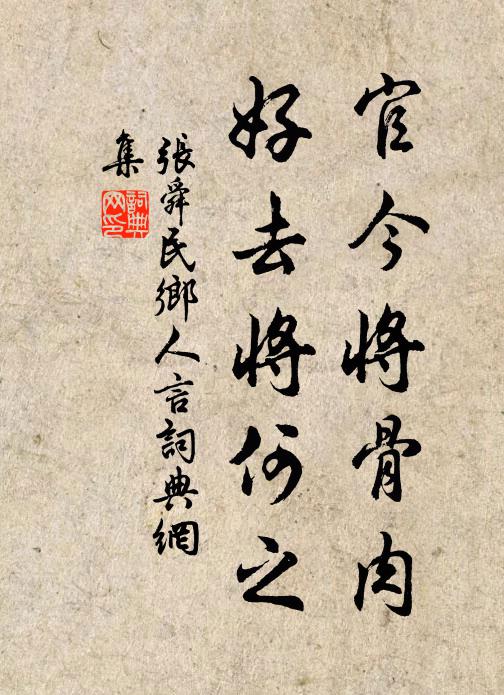 官今將骨肉
好去將何之
張舜民鄉人言詞典網
集
詞典
网印